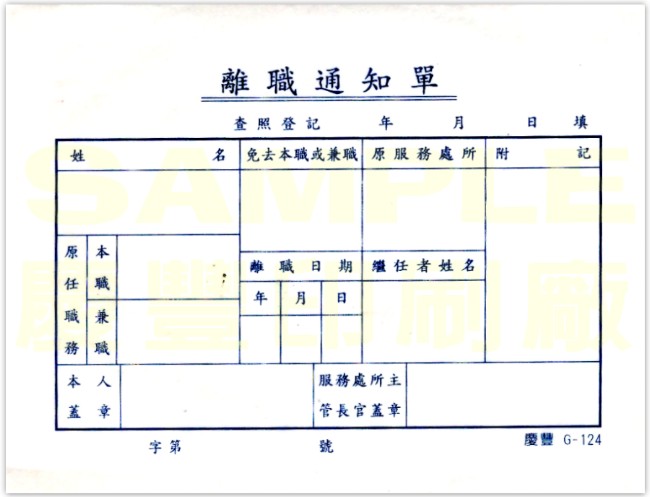 離職通知單
查照登記 年 月 日 填
姓 名 免去本職或兼職 原服務處所 附 記
原任職務 本職 離職日期 繼任者姓名
年 月 日
兼職
本人蓋章 服務處所主管長官蓋章
字第 號
慶豐 G-124
SAMPLE
慶豐印刷廠